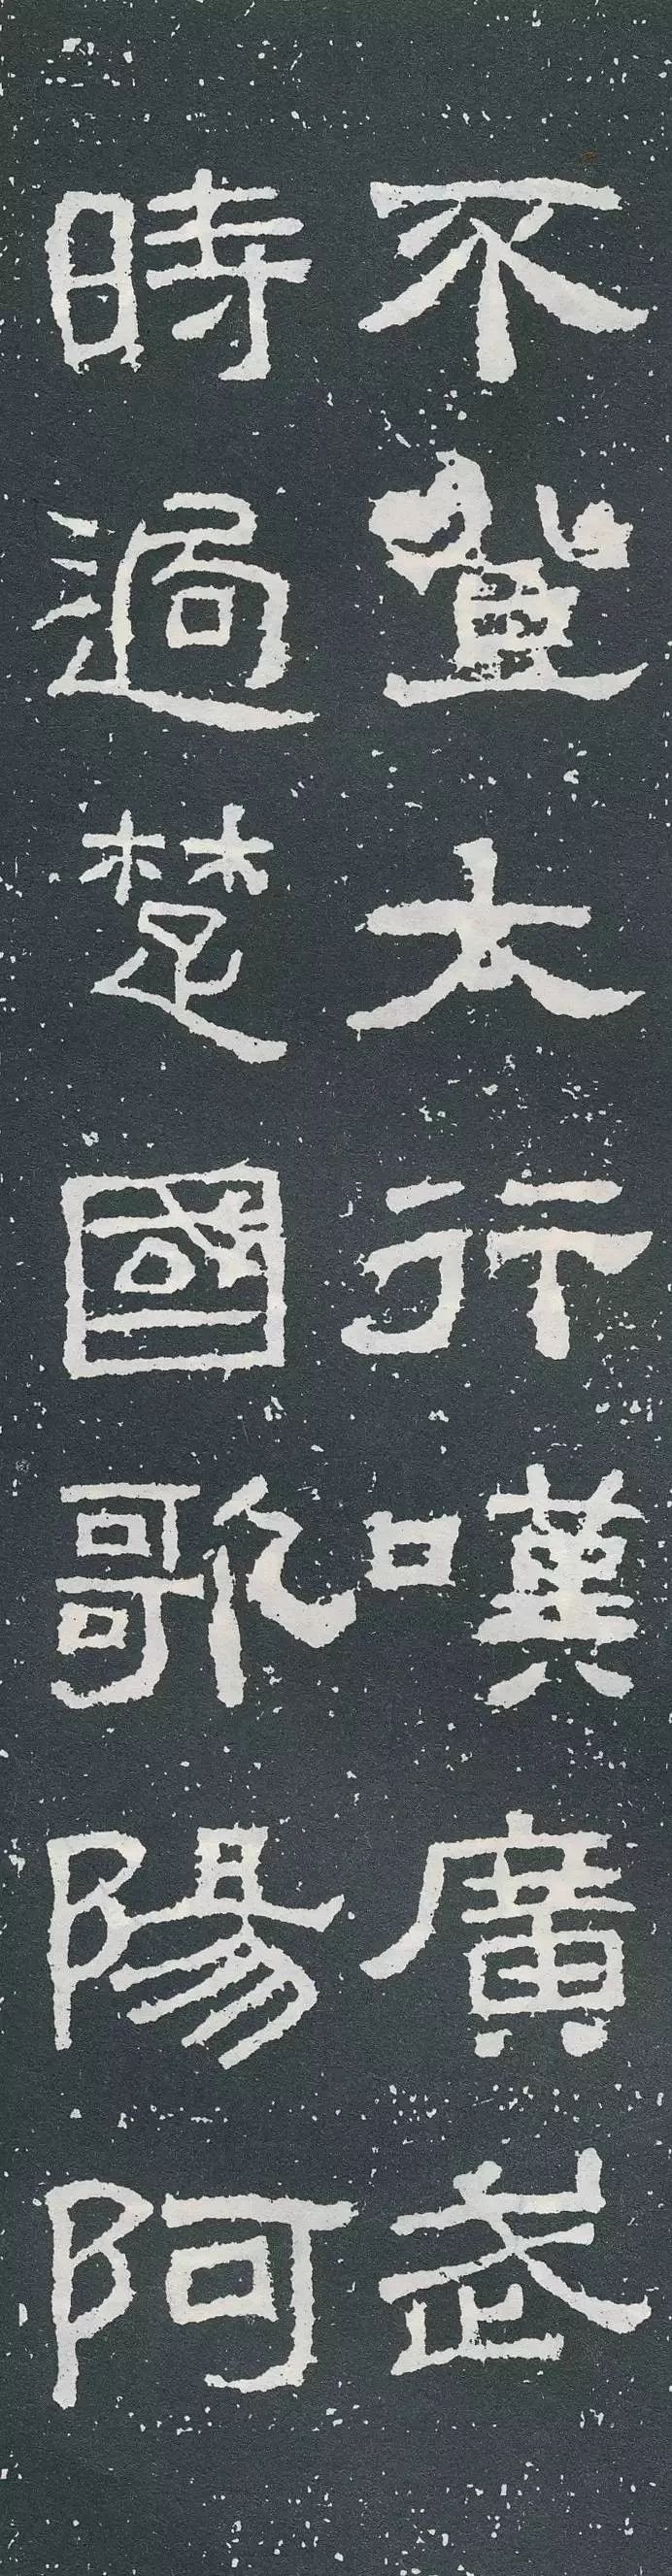 不登大行嘆廣武
時過楚國歌陽阿